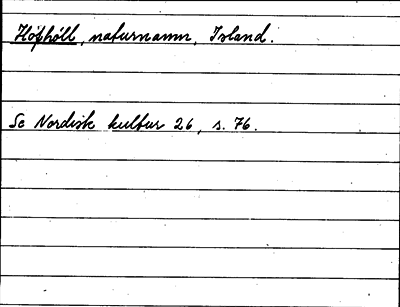 Hofhöll, naturnamn, Island.
Se Nordisk kultur 26, s. 76.